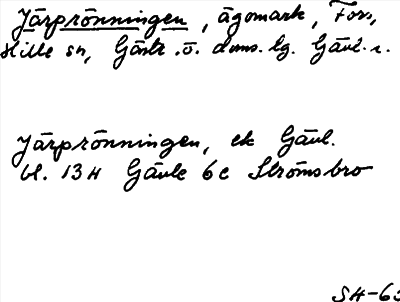 Järprönningen, ägomark, Fors,
Hille sn, Gästr. ö. doms. lg. Gävl. l.
Järprönningen, ek Gävl.
bl. 13H Gävle 6c Strömsbro
SH-63